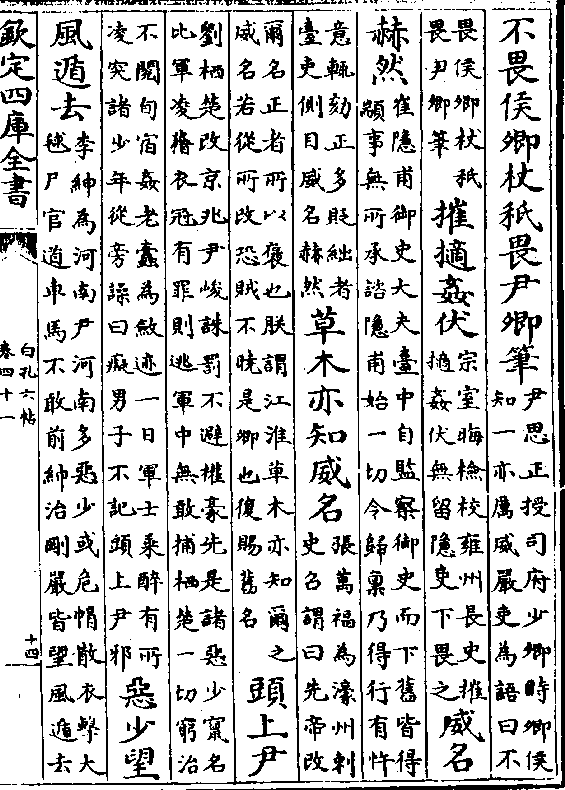 不畏侯卿杖秖畏尹卿筆尹思正授司府少卿時卿侯知一亦厲威嚴吏為語曰不
畏侯卿杖秖畏尹卿筆摧擿姦伏宗室晦檢校雍州長史摧擿姦伏無留隱吏下畏之威名
赫然崔隱甫御史大夫臺中自監察御史而下舊皆得顓事無所承諮隱甫始一切令歸稟乃得行有忤
意輒劾正多貶絀者臺吏側目威名赫然草木亦知威名張萬福為濠州刺史召謂曰先帝改
爾名正者所以褒也朕謂江淮草木亦知爾之威名若從所改恐賊不曉是卿也復賜舊名頭上尹
劉栖楚改京兆尹峻誅罰不避權豪先是諸惡少竄名比軍凌藉衣冠有罪則逃軍中無敢捕栖楚一切窮治
不閱旬宿姦老蠹為斂迹一日軍士乘醉有所凌突諸少年從旁譟曰癡男子不記頭上尹邪惡少望
風遁去李紳為河南尹河南多惡少或危帽散衣擊大毬尸官道車馬不敢前紳治剛嚴皆望風遁去
欽定四庫全書
白孔六帖
卷四十一
十四